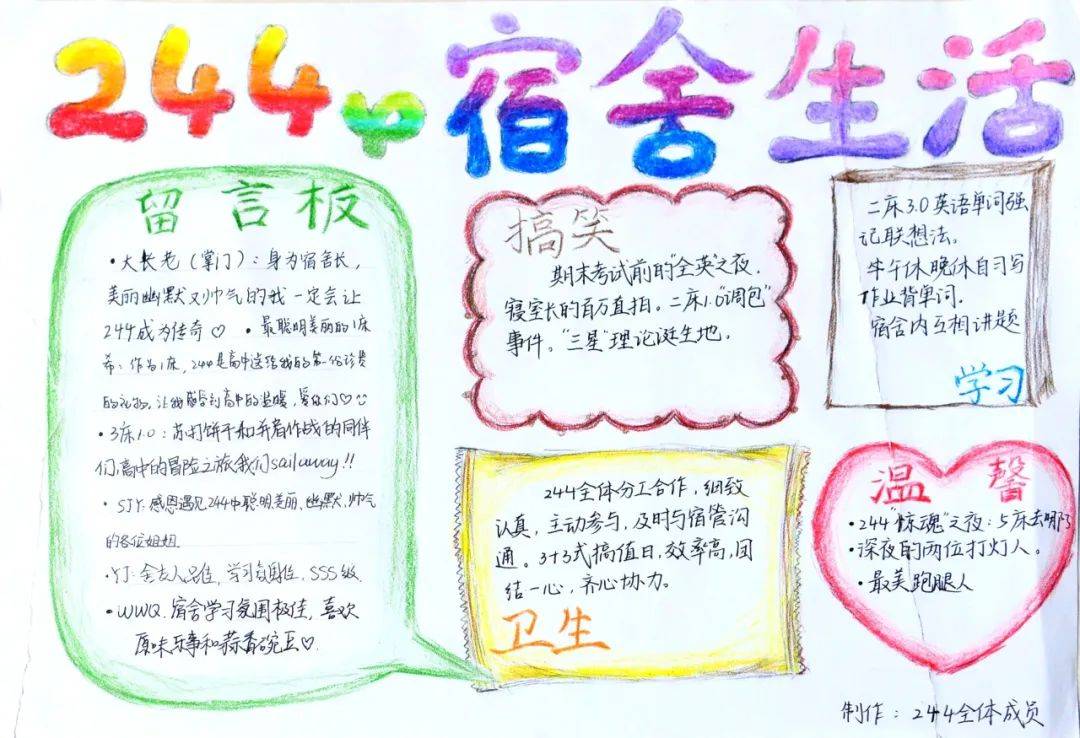 244中宿舍生活
留言板
•大长老(掌门):身为宿舍长,
美丽幽默又帅气的我一定会让
244成为传奇♡ •最聪明美丽的1床
希:作为1床,244是高中送给我的第一份珍贵
的礼物。让我感受到高中的温暖,爱你们♡☺
•3床1.0:苏打饼干和并肩作战的同伴
们,高中的冒险之旅,我们sail away!!
•SJY:感恩遇见244中聪明美丽、幽默、帅气
的各位姐姐.
•YJ:舍友人品佳,学习氛围佳,SSS级.
•WWQ.宿舍学习氛围极佳,喜欢
原味乐事和蒜香豌豆♡.
搞笑
期末考试前的"全英"之夜.
寝室长的百万直拍。二床1.0"调包"
事件。"三星"理论诞生地.
二床3.0英语单词强
记联想法。
牛午休晚休自习写
作业背单词.
宿舍内互相讲题
学习
244全体分工合作,细致
认真,主动参与,及时与宿管沟
通。3+3式搞值日,效率高,团
结一心,齐心协力.
卫生
温馨
•244"惊魂"之夜:5床去哪了
•深夜的两位打灯人。
•最美跑腿人
制作:244全体成员